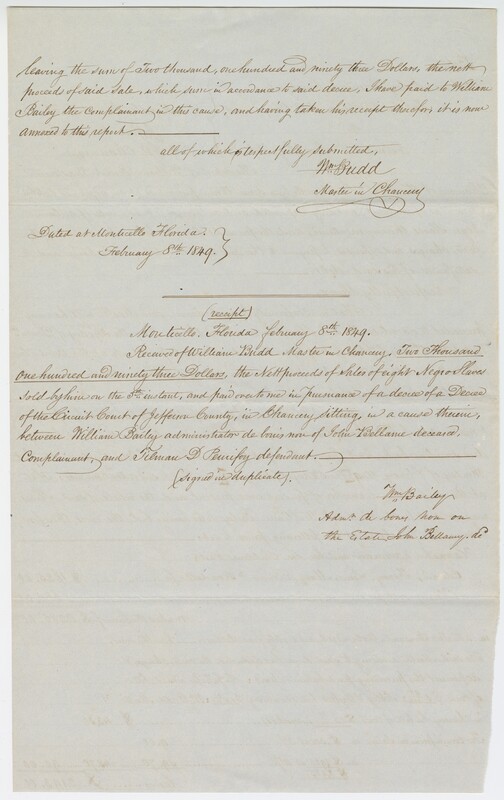 leaving the sum of Two thousand, one hundred and ninety three Dollars, the nett
proceeds of said Sale, which sum in accordance to said decree, I have paid to William
Bailey the complainant in this cause, and having taken his receipt therefor, it is now
annexed to this report.
all of which is respectfully submitted,
Wm Budd
Master in Chancery
Dated at Monticello Florida.
February 8th 1849.
(receipt)
Monticello, Florida february 8th 1849.
Received of William Budd Master in Chancery, Two Thousand
one hundred and ninety three Dollars, the Nett proceeds of Sales of eight Negro Slaves
Sold by him on the 5th instant, and paid over to me in pursuance of a decree of a Decree
of the Circuit Court of Jefferson County, in Chancery sitting, in a cause therein,
between William Bailey administrator de bonis non of John Bellamy deceased,
Complainant, and Tilman D Peurifoy defendant.
(Signed in duplicate).
Wm Bailey
Admr de bones non on
the Estate John Bellamy decd